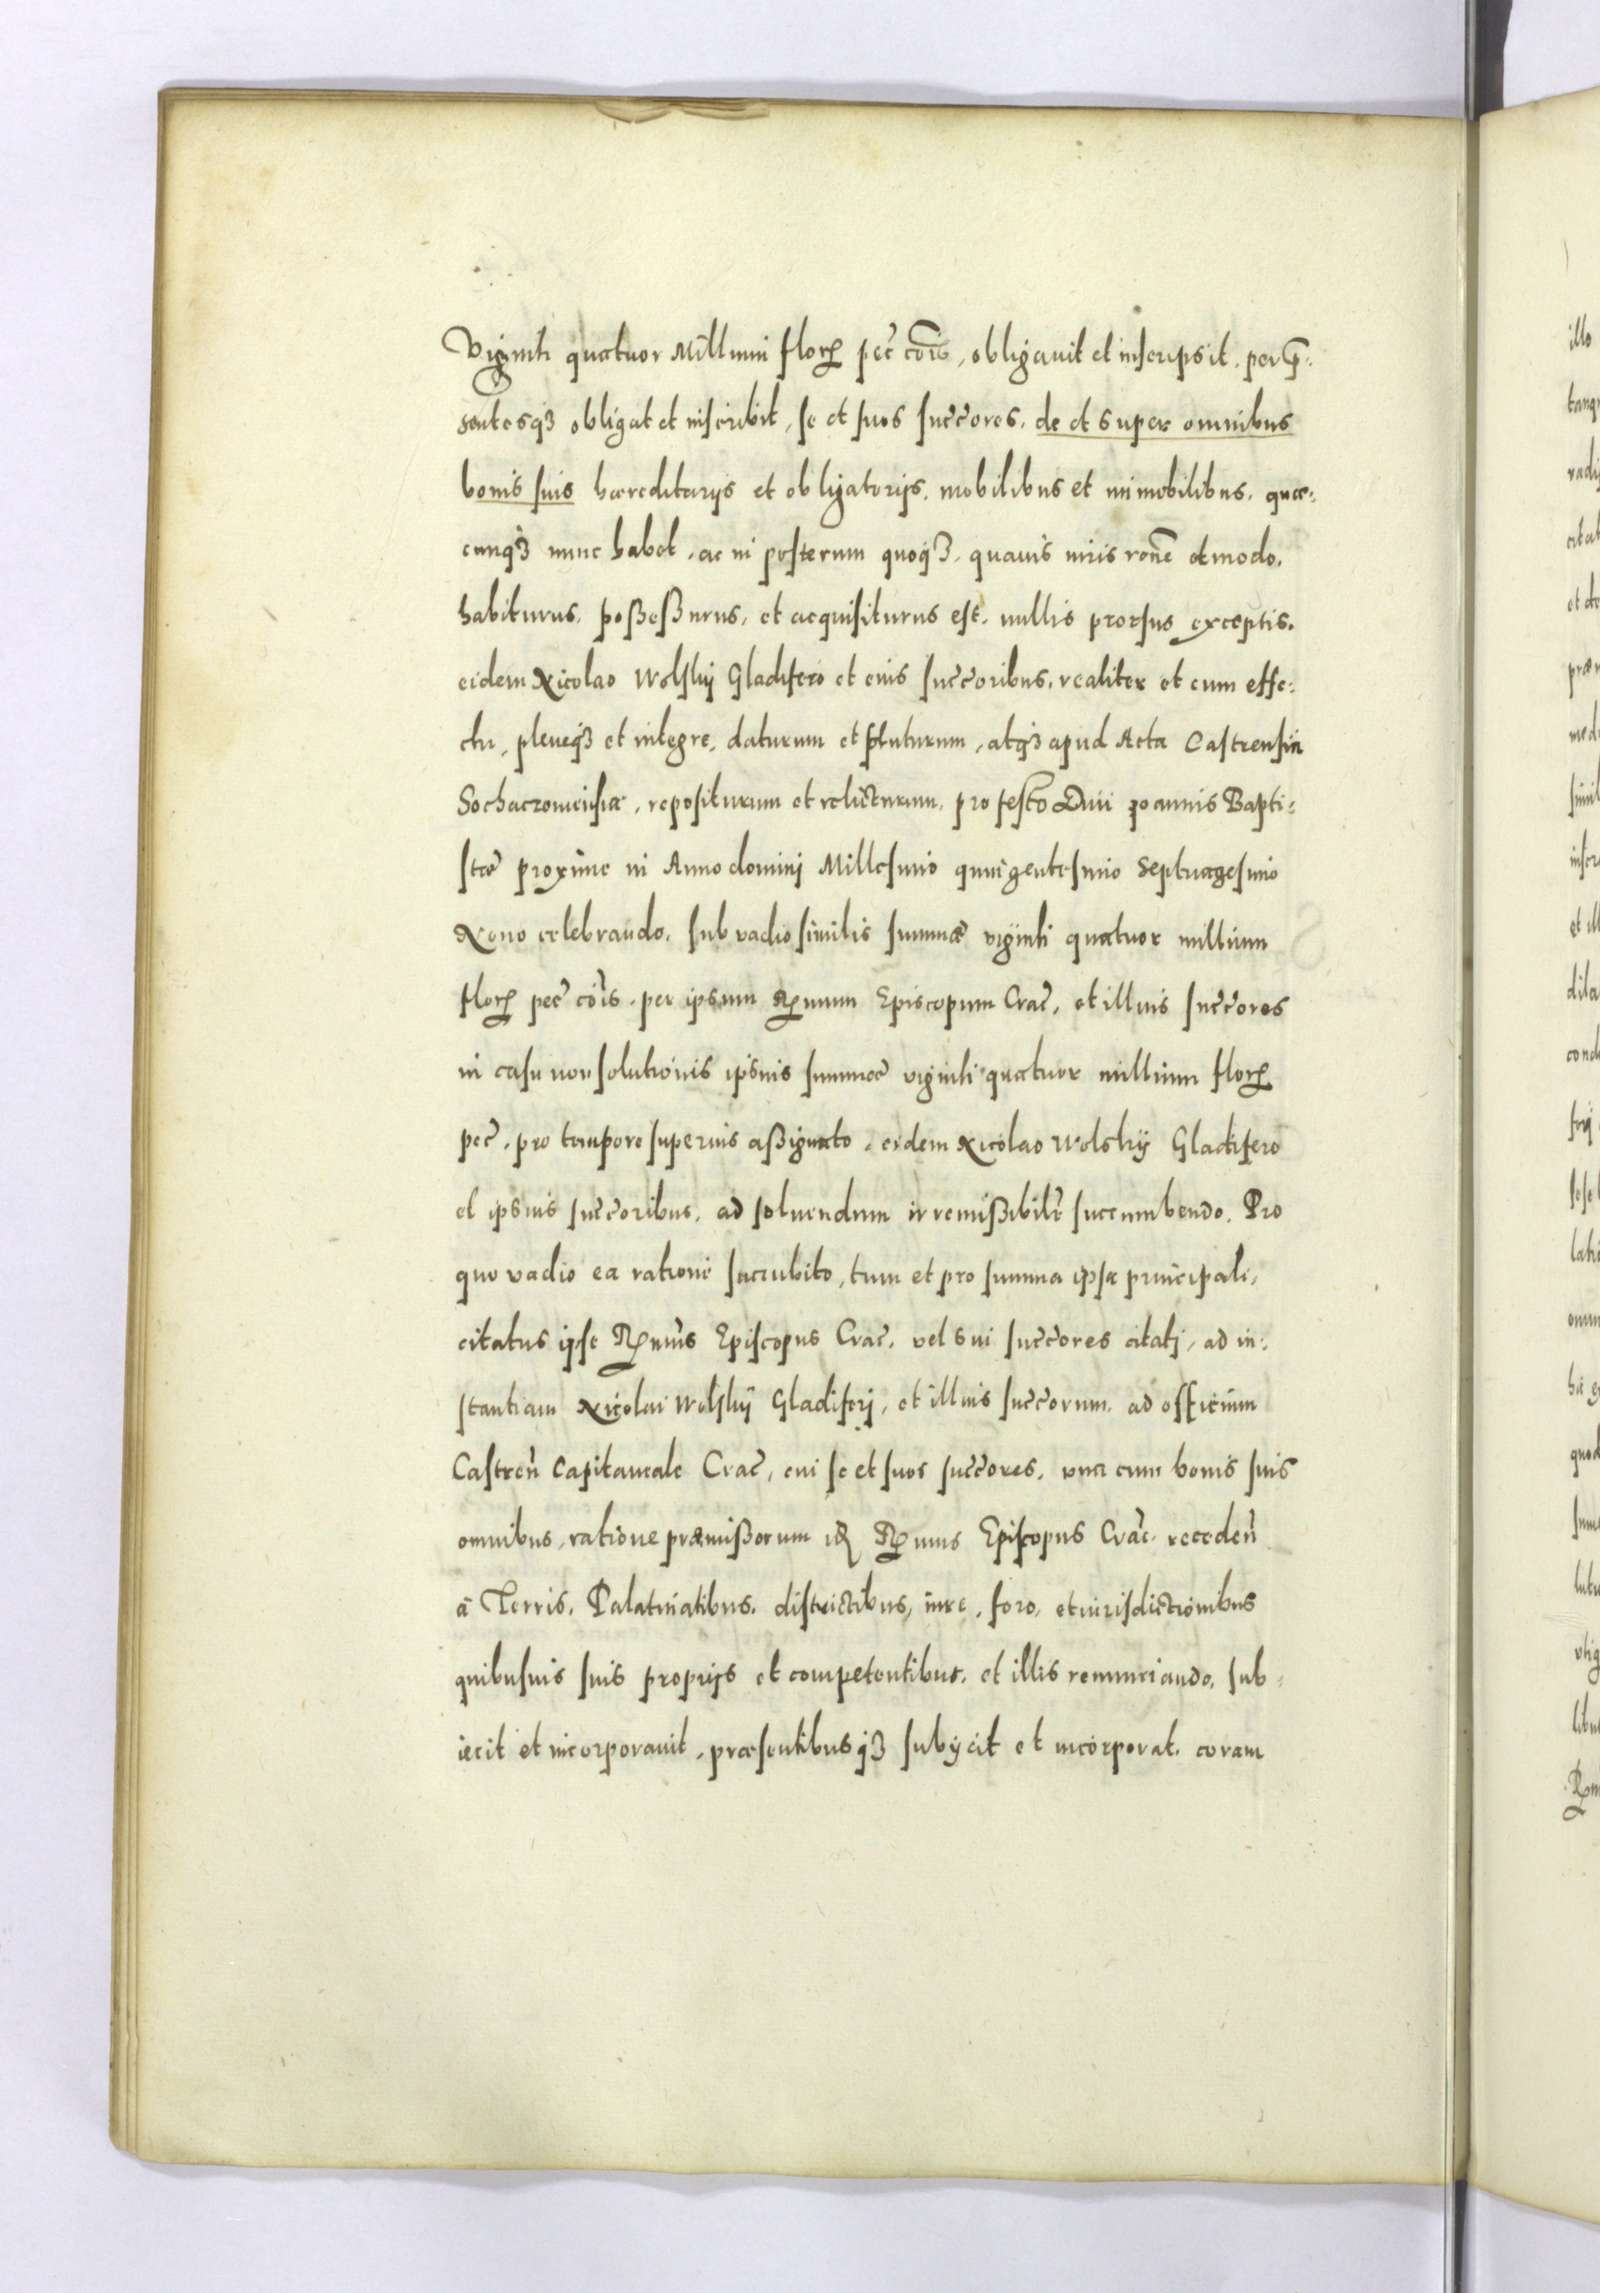 Viginti quatuor Millium flor. pec̃ cõis, obligauit et inscripsit, per p̃-
sentesq̃ʒ obligat et inscribit, se et suos succ̃ores, de et super omnibus
bonis suis hæreditarijs et obligatorijs, mobilibus et immobilibus, quæ-
cunqʒ nunc habet, ac in posterum quoqʒ, quauis iuris rõne et modo,
habiturus, poßeßurus, et acquisiturus est, nullis prorsus exceptis,
eidem Nicolao Wolsky Gladifero et eius succ̃oribus, realiter et cum effe-
ctu, pleneqʒ et integre, daturum et soluturum, atqʒ apud Acta Castrensia
Sochaczouiensia, repositurum et relicturum, pro festo Diui Joannis Bapti-
stæ proximè in Anno domini Millesimo quingentesimo Septuagesimo
Nono celebrando, sub vadio similis summæ viginti quatuor millium
flor. pec̃ cõis, per ipsum R.mum Episcopum Crac̃, et illius succ̃ores
in casu non solutionis ipsius summæ viginti quatuor millium flor.
pec̃, pro tempore superius aßignato, eidem Nicolao Wolsky Gladifero
et ipsius succ̃oribus, ad soluendum irremißibilr̃ succumbendo. Pro
quo vadio ea ratione succubito, tum et pro summa ipsa principali,
citatus ipse R.mus Episcopus Crac̃, vel sui succ̃ores citatj, ad in-
stantiam Nicolai Wolsky Gladiferj, et illius succ̃orum, ad officium
Castreñ Capitaneale Crac̃, cui se et suos succ̃ores, vna cum bonis suis
omnibus, ratione præmißorum R.mus Episcopus Crac̃. recedeñ
à Terris, Palatinatibus, districtibus, iure, foro, et iurisdictionibus
quibusuis suis proprijs et competentibus, et illis renunciando, sub-
iecit et incorporauit, præsentibusqʒ subijcit et incorporat, coram
illo